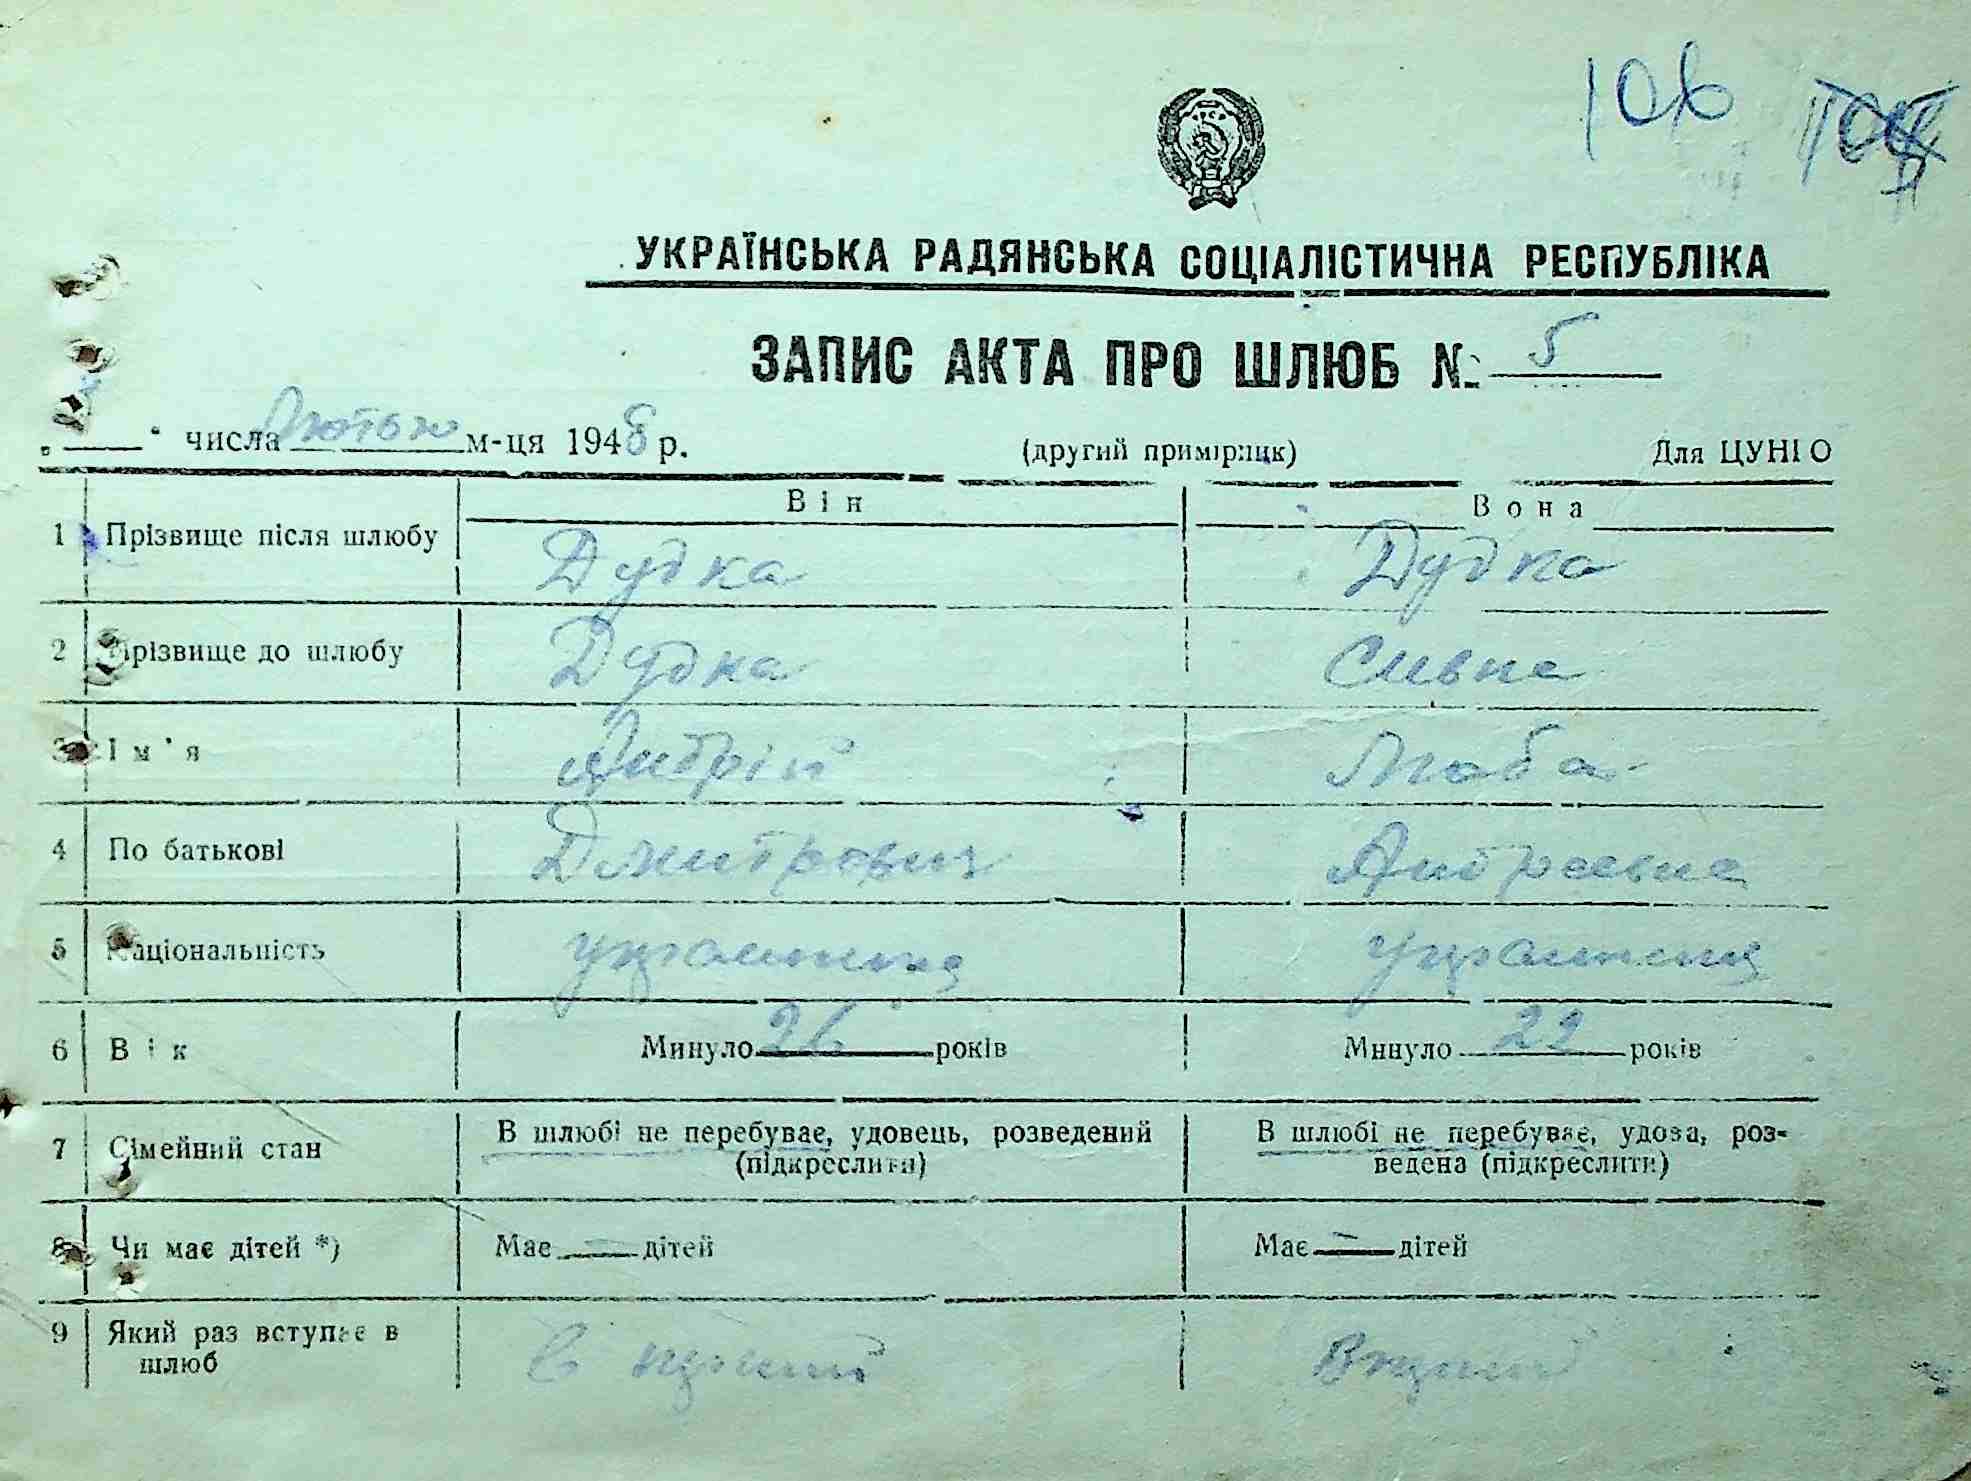 106
УКРАЇНСЬКА РАДЯНСЬКА СОЦІАЛІСТИЧНА РЕСПУБЛІКА
ЗАПИС АКТА ПРО ШЛЮБ № 5
" " числа Лютого м-ця 1948 р. (другий примірник) Для ЦУНГО
Він Вона
1 Прізвище після шлюбу Дудка Дудка
2 Прізвище до шлюбу Дудка
3 Ім'я Андрій Люба
4 По батькові Дмитрович Андреевна
5 Національність
6 Вік Минуло 26 років Минуло 22 років
7 Сімейний стан В шлюбі не перебуває, удовець, розведений (підкреслити) В шлюбі не перебуває, удова, роз-
ведена (підкреслити)
8 Чи має дітей *) Має — дітей Має — дітей
9 Який раз вступає в
шлюб